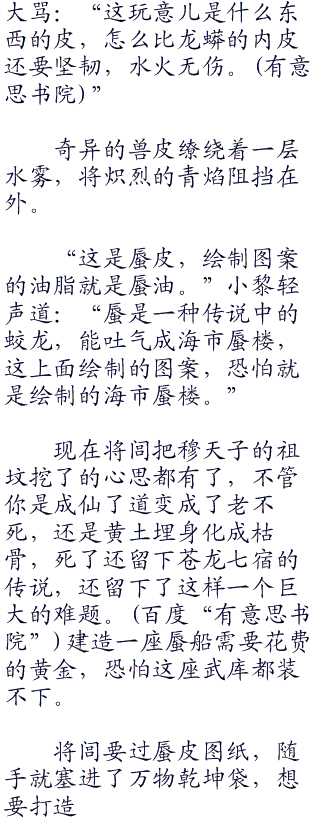 大骂：“这玩意儿是什么东
西的皮，怎么比龙蟒的内皮
还要坚韧，水火无伤。(有意
思书院)”
奇异的兽皮缭绕着一层
水雾，将炽烈的青焰阻挡在
外。
“这是蜃皮，绘制图案
的油脂就是蜃油。”小黎轻
声道：“蜃是一种传说中的
蛟龙，能吐气成海市蜃楼，
这上面绘制的图案，恐怕就
是绘制的海市蜃楼。”
现在将闾把穆天子的祖
坟挖了的心思都有了，不管
你是成仙了道变成了老不
死，还是黄土埋身化成枯
骨，死了还留下苍龙七宿的
传说，还留下了这样一个巨
大的难题。(百度“有意思书
院”)建造一座蜃船需要花费
的黄金，恐怕这座武库都装
不下。
将闾要过蜃皮图纸，随
手就塞进了万物乾坤袋，想
要打造